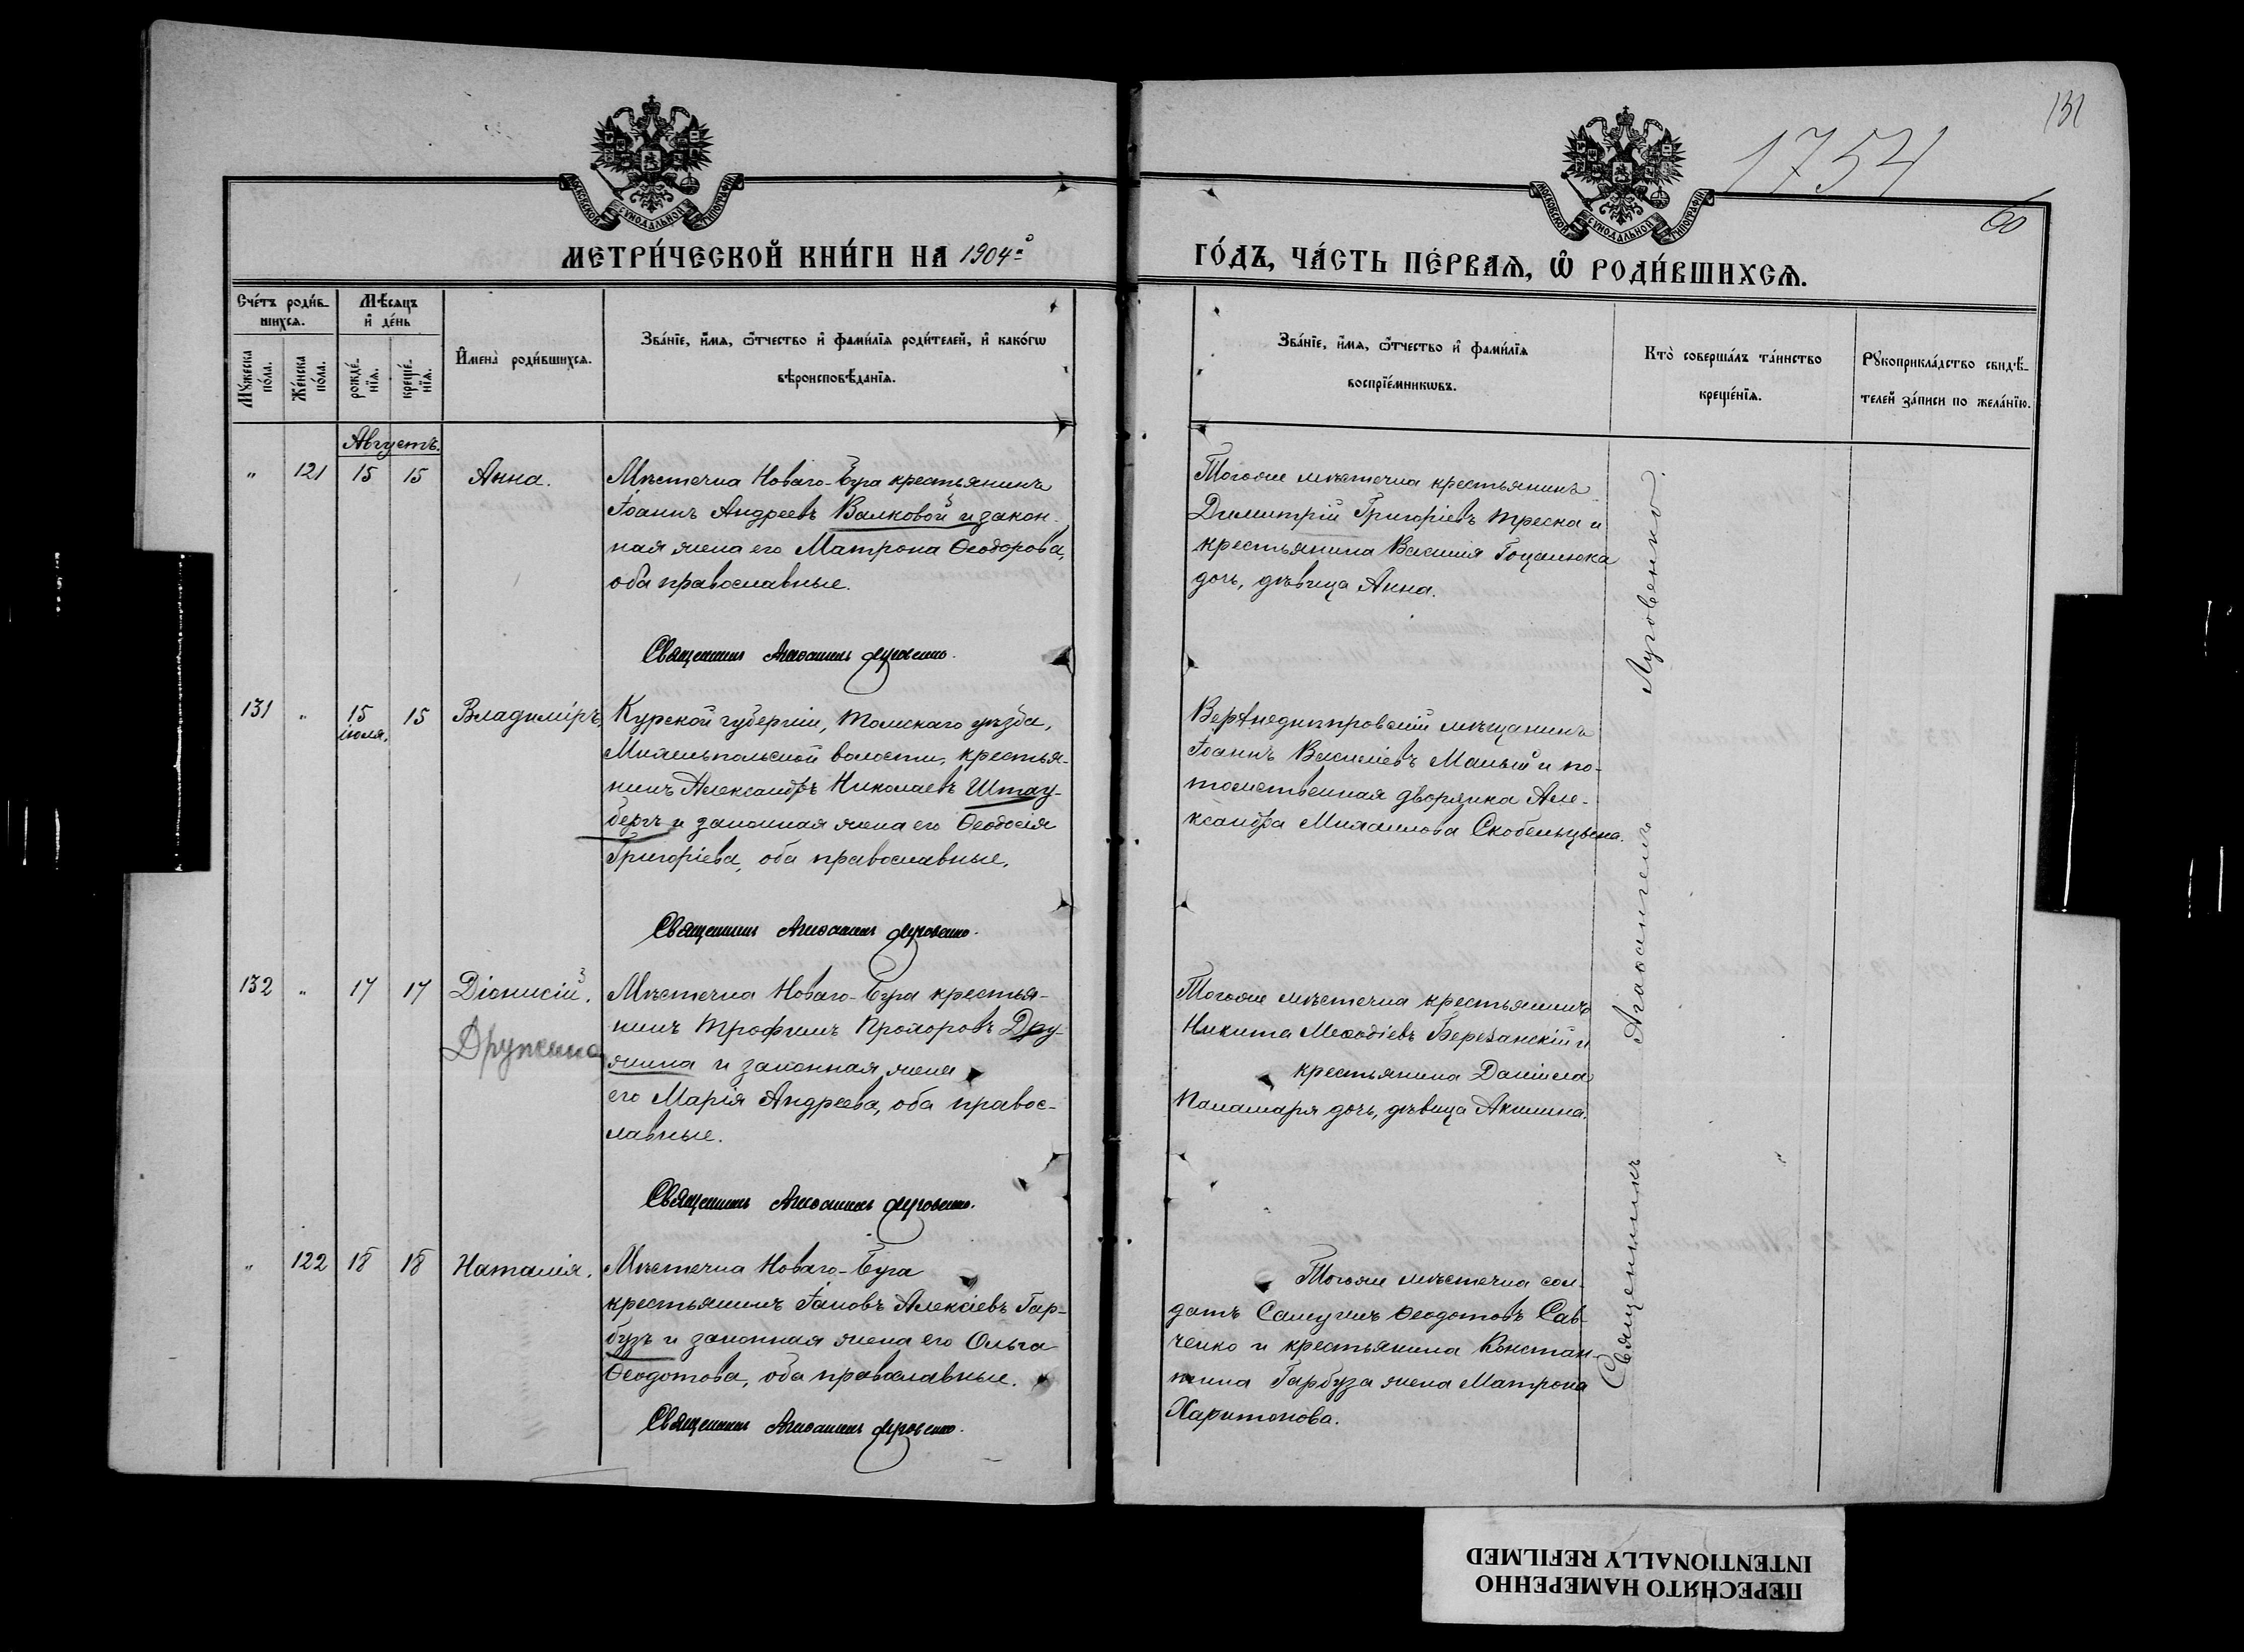 131
1754
60
МОСКОВСКОЙ СѴНОДАЛЬНОЙ ТИПОГРАФІИ
МОСКОВСКОЙ СѴНОДАЛЬНОЙ ТИПОГРАФІИ
МЕТРИ́ЧЕСКОЙ КНИ́ГИ НА 1904й
ГО́ДЪ, ЧА́СТЬ ПЕ́РВАЯ, Ѽ РОДИ́ВШИХСЯ.
Сче́тъ роди́в-
шихся.
Мѣ́сяцъ
и҆ де́нь
Мꙋ́жеска
по́ла.
Же́нска
по́ла.
рожде́-
нїя.
креще́-
нїя.
И҆мена̀ роди́вшихся.
Зва́нїе, и҆́мя, ѻ҆́тчество и҆ фами́лїя роди́телей, и҆ како́гѡ
вѣроисповѣ́данїя.
Зва́нїе, и҆́мя, ѻ҆́тчество и҆ фами́лїя
воспрїе́мникѡвъ.
Кто̀ соверша́лъ та́инство
креще́нїя.
Рꙋкоприкла́дство свидѣ́-
телей за́писи по жела́нїю.
Августъ.
" 121 15 15 Анна.
Мѣстечка Новаго-Буга крестьянинъ
Іоаннъ Андреевъ Валковой и закон-
ная жена его Матрона Ѳеодорова,
оба православные.
Священникъ Агаѳангелъ Луговенко.
Тогоже мѣстечка крестьянинъ
Димитрій Григоріевъ Треска и
крестьянина Василія Гоцалюка
дочь, дѣвица Анна.
131 " 15 іюля. 15 Владиміръ.
Курской губерніи, уѣзда,
волости, крестья-
нинъ Александръ Николаевъ Штау-
бергъ и законная жена его Ѳеодосія
Григоріева, оба православные.
Священникъ Агаѳангелъ Луговенко.
Верхнеднѣпровскій мѣщанинъ
Іоаннъ Василіевъ Малый и по-
томственная дворянка Але-
ксандра Михаилова
132 " 17 17 Діонисій.
Дружина
Мѣстечка Новаго-Буга крестья-
нинъ Трофимъ Прохоровъ Дру-
жина и законная жена
его Марія Андреева, оба правос-
лавные.
Священникъ Агаѳангелъ Луговенко.
Тогоже мѣстечка крестьянинъ
Никита Меѳодіевъ Березанскій и
крестьянина Даніила
Паламаря дочь, дѣвица Акилина.
" 122 18 18 Наталія.
Мѣстечка Новаго-Буга
крестьянинъ Іаковъ Алексіевъ Гар-
бузъ и законная жена его Ольга
Ѳеодотова, оба православные.
Священникъ Агаѳангелъ Луговенко.
Тогоже мѣстечка сол-
датъ Самуилъ Ѳеодотовъ Сав-
ченко и крестьянина Констан-
тина Гарбуза жена Матрона
Харитонова.
Священникъ Агаѳангелъ Луговенко.
ПЕРЕСНЯТО НАМЕРЕННО
INTENTIONALLY REFILMED